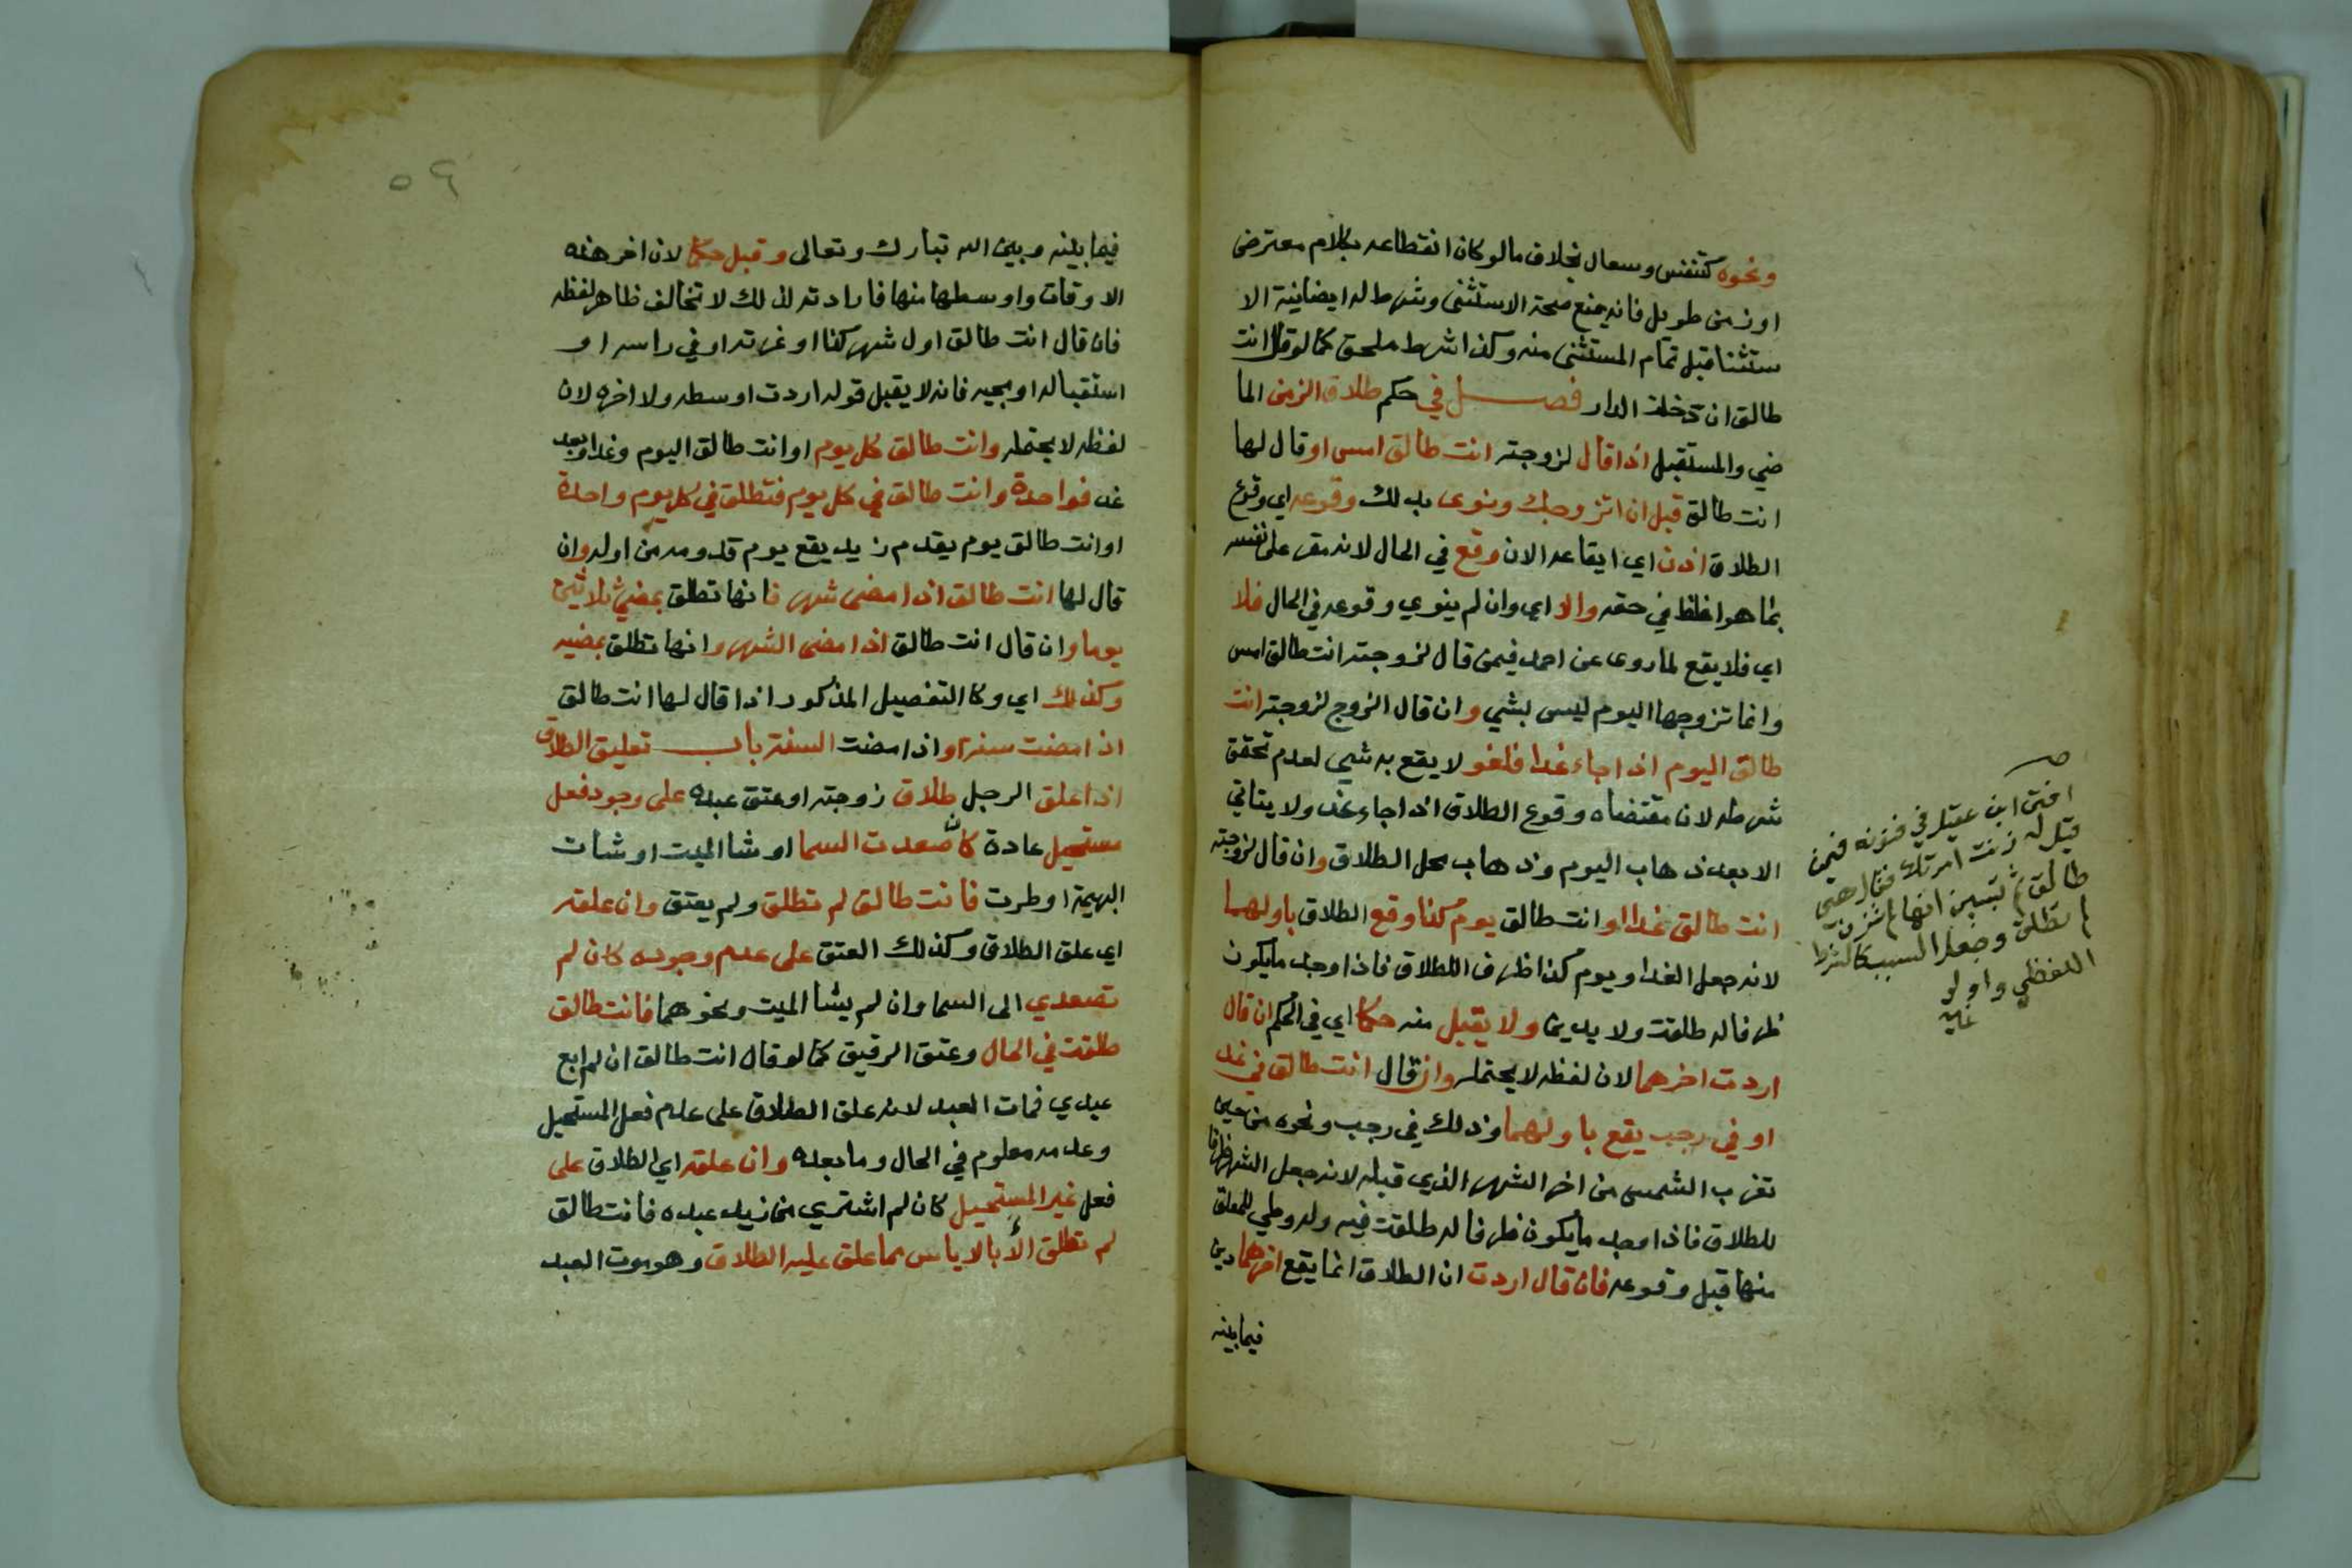 ونحوه كتنفس وسعال بخلاف مالوكان انقطاعه بكلام معترض
اوزمن طويل فانه يمنع صحة الاستثنى وشرط له ايضا نية الا
ستثنا قبل تمام المستثنى منه وكذا شرط ملحق كما لوقال انت
طالق ان دخلت الدار فصل في حكم طلاق الزمن الما
ضي والمستقبل اذا قال لزوجته انت طالق امس اوقال لها
انت طالق قبل ان اتزوجك ونوى بذلك وقوعه اي وقوع
الطلاق اذن اي ايقاعه الان وقع في الحال لانه مقر على نفسه
بما هو اغلظ في حقه والا اي وان لم ينوي وقوعه في الحال فلا
اي فلا يقع لما روى عن احمد فيمن قال لزوجته انت طالق امس
وانما تزوجها اليوم ليس بشي وان قال الزوج لزوجته انت
طالق اليوم اذا جاء غدا فلغو لا يقع به شي لعدم تحقق
شرطه لان مقتضاه وقوع الطلاق اذا جاء غد ولا يتاتي
الا بعد ذهاب اليوم وذهاب محل الطلاق وان قال لزوجته
انت طالق غدا او انت طالق يوم كذا وقع الطلاق باولهما
لانه جعل الغد او يوم كذا ظرف اللطلاق فاذا وجد مايكون
ظرفا له طلقت ولا يدين ولا يقبل منه حكما اي في الحكم ان قال
اردت اخرهما لان لفظه لا يحتمله وان قال انت طالق في غد
او في رجب يقع باولهما وذلك في رجب ونحوه من حين
تغرب الشمس من اخر الشهر الذي قبله لانه جعل الشهر ظرفا
للطلاق فاذا وجد مايكون ظرفا له طلقت فيه وله وطي المعلق
منها قبل وقوعه فان قال اردت ان الطلاق انما يقع اخرهما دين
فيما بينه
افتى ابن عقيل في فنونه فيمن
قيل له زنت امرتك فقال هي
طالق ثم تبين انها لم تزن
لم تطلق وجعل السبب كالشرط
اللفظي واولى
غايه
٥٩
فيما بينه وبين الله تبارك وتعالى وقبل حكما لان اخر هذه
الاوقات واوسطها منها فارادته لذلك لا تخالف ظاهر لفظه
فان قال انت طالق اول شهر كذا او غرته او في راسه او
استقباله او مجيه فانه لا يقبل قوله اردت اوسطه ولا اخره لان
لفظه لا يحتمله وانت طالق كل يوم او انت طالق اليوم وغدا وبعد
غد فواحدة وانت طالق في كل يوم فتطلق في كل يوم واحدة
او انت طالق يوم يقدم زيد يقع يوم قدومه من اوله وان
قال لها انت طالق اذا مضى شهر فانها تطلق بمضي ثلاثين
يوما وان قال انت طالق اذا مضى الشهر وانها تطلق بمضيه
وكذلك اي وكا التفصيل المذكور اذا قال لها انت طالق
اذا مضت سنة او اذا مضت السنة باب تعليق الطلاق
اذا علق الرجل طلاق زوجته او عتق عبده على وجود فعل
مستحيل عادة كان صعدت السما او شا الميت او شات
البهيمة او طرت فانت طالق لم تطلق ولم يعتق وان علقه
اي علق الطلاق وكذلك العتق على عدم وجوده كان لم
تصعدي الى السما وان لم يشا الميت ونحوهما فانت طالق
طلقت في الحال وعتق الرقيق كما لو قال انت طالق ان لم ابع
عبدي فمات العبد لانه علق الطلاق على عدم فعل المستحيل
وعدمه معلوم في الحال وما بعده وان علقه اي الطلاق على
فعل غير المستحيل كان لم اشتري من زيد عبده فانت طالق
لم تطلق الا بالاياس مما علق عليه الطلاق وهو موت العبد